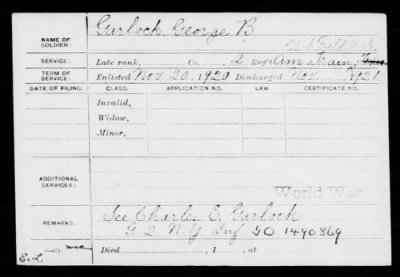 NAME OF SOLDIER: Garlock, George B
U S Field Art.
SERVICE: Late rank, Co. 2 Reg't Am. Train,
TERM OF SERVICE: Enlisted Nov. 20, 1920 Discharged Nov. 1921
DATE OF FILING. CLASS. APPLICATION NO. LAW. CERTIFICATE NO.
Invalid,
Widow,
Minor,
ADDITIONAL SERVICES:
World War
REMARKS: See Charles E. Garlock
2 N.Y. Inf SO 1490869
E.L. Died , 1 , at